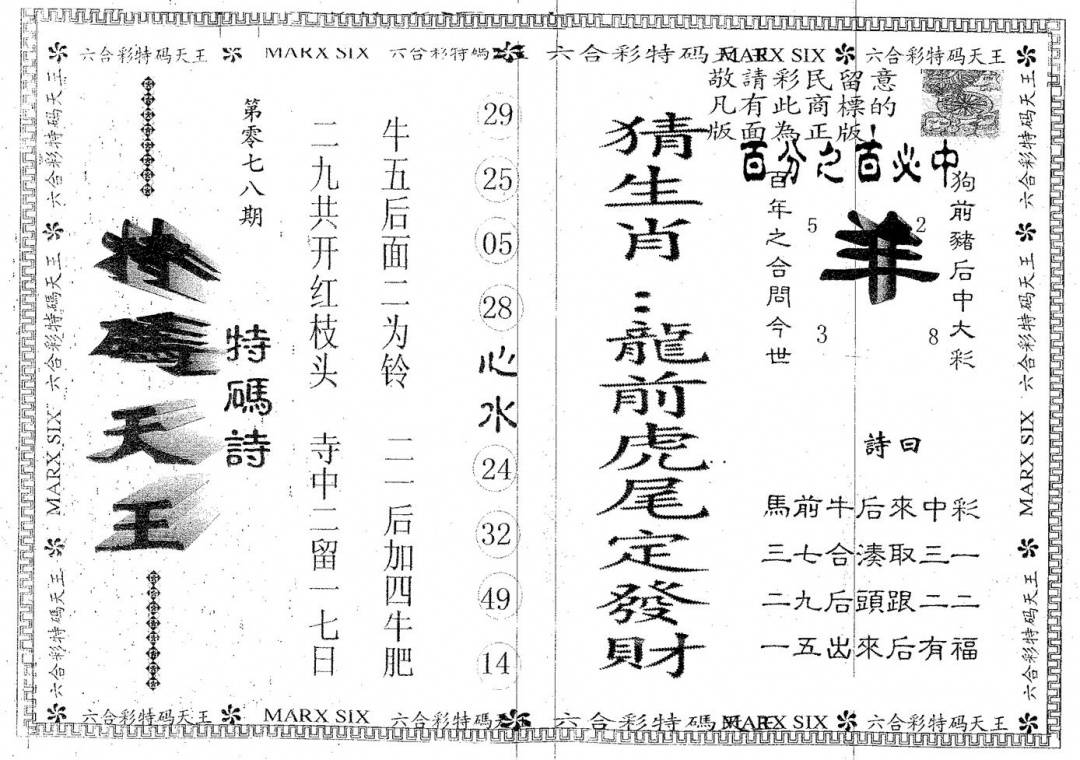 六合彩特码天王 MARX SIX 六合彩特碼天王 六合彩特码天王 MARX SIX 六合彩特码天王
敬請彩民留意
凡有此商標的
版面為正版!
百分之百必中
狗前豬后中大彩
羊
5 2
3 8
百年之合問今世
詩曰
馬前牛后來中彩
三七合湊取三一
二九后頭跟二二
一五出來后有福
猜生肖：龍前虎尾定發財
29
25
05
28
心水
24
32
49
14
牛五后面二为铃 二一后加四牛肥
二九共开红枝头 寺中二留一七日
特碼詩
第零七八期
特碼天王
六合彩特码天王 六合彩特碼天王 MARX SIX 六合彩特碼天王
六合彩特码天王 六合彩特码天王 MARX SIX 六合彩特码天王
六合彩特码天王 MARX SIX 六合彩特碼天王 六合彩特碼天王 MARX SIX 六合彩特码天王